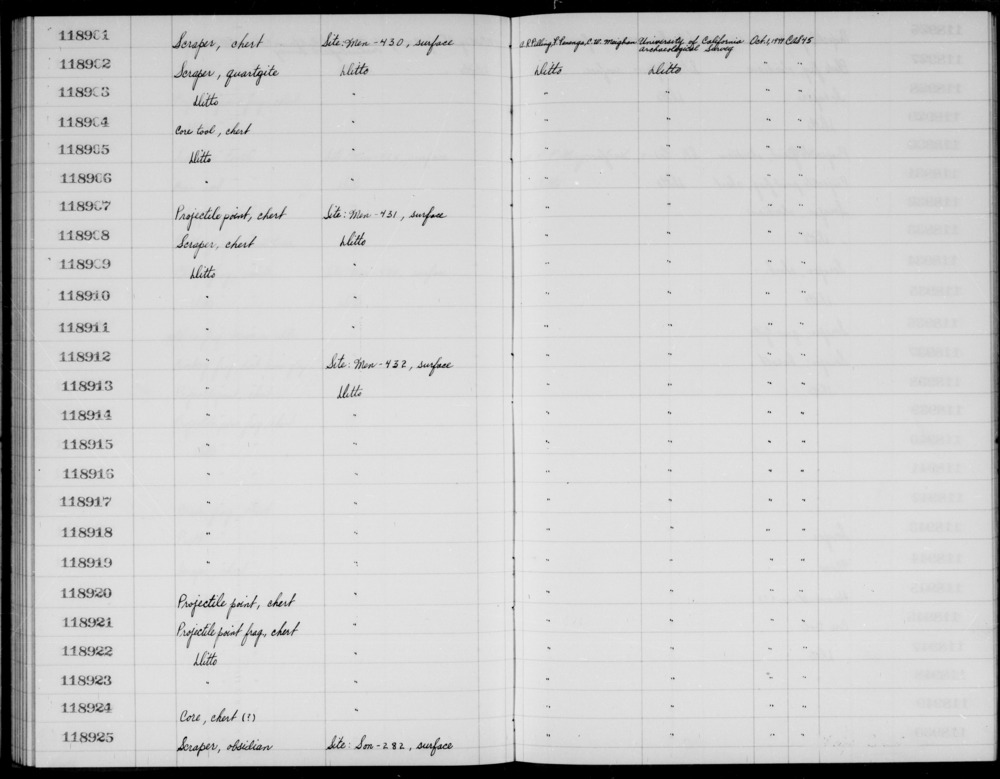 118901 Scraper, chert Site: Men-430, surface A.R. Pilling, C.W. Meighan University of California archaeological Survey Oct. 1, 1949 Cat 45
118902 Scraper, quartzite Ditto Ditto Ditto " "
118903 Ditto " " " " "
118904 Core tool, chert " " " " "
118905 Ditto " " " " "
118906 " " " " " "
118907 Projectile point, chert Site: Men-431, surface " " " "
118908 Scraper, chert Ditto " " " "
118909 Ditto " " " " "
118910 " " " " " "
118911 " " " " " "
118912 " Site: Men-432, surface " " " "
118913 " Ditto " " " "
118914 " " " " " "
118915 " " " " " "
118916 " " " " " "
118917 " " " " " "
118918 " " " " " "
118919 " " " " " "
118920 Projectile point, chert " " " " "
118921 Projectile point frag., chert " " " " "
118922 Ditto " " " " "
118923 " " " " " "
118924 Core, chert (?) " " " " "
118925 Scraper, obsidian Site: Son-282, surface " " " "